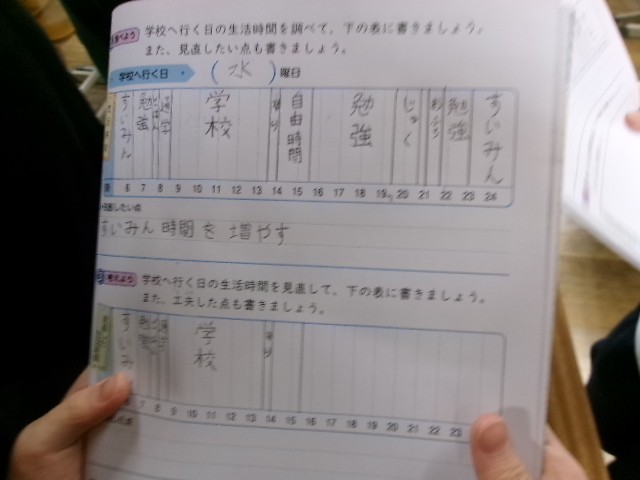 学校へ行く日の生活時間を調べて、下の表に書きましょう。
また、見直したい点も書きましょう。
学校へ行く日 (水) 曜日
すいみん 勉強 ごはん 通学 学校 帰り 自由時間 勉強 じゅく おふろ 勉強 すいみん
6 7 8 9 10 11 12 13 14 15 16 17 18 19 20 21 22 23 24
したい点
すいみん時間を増やす
学校へ行く日の生活時間を見直して、下の表に書きましょう。
また、工夫した点も書きましょう。
すいみ 学校 帰り
7 8 9 10 11 12 13 14 15 16 17 18 19 20 21 22 23